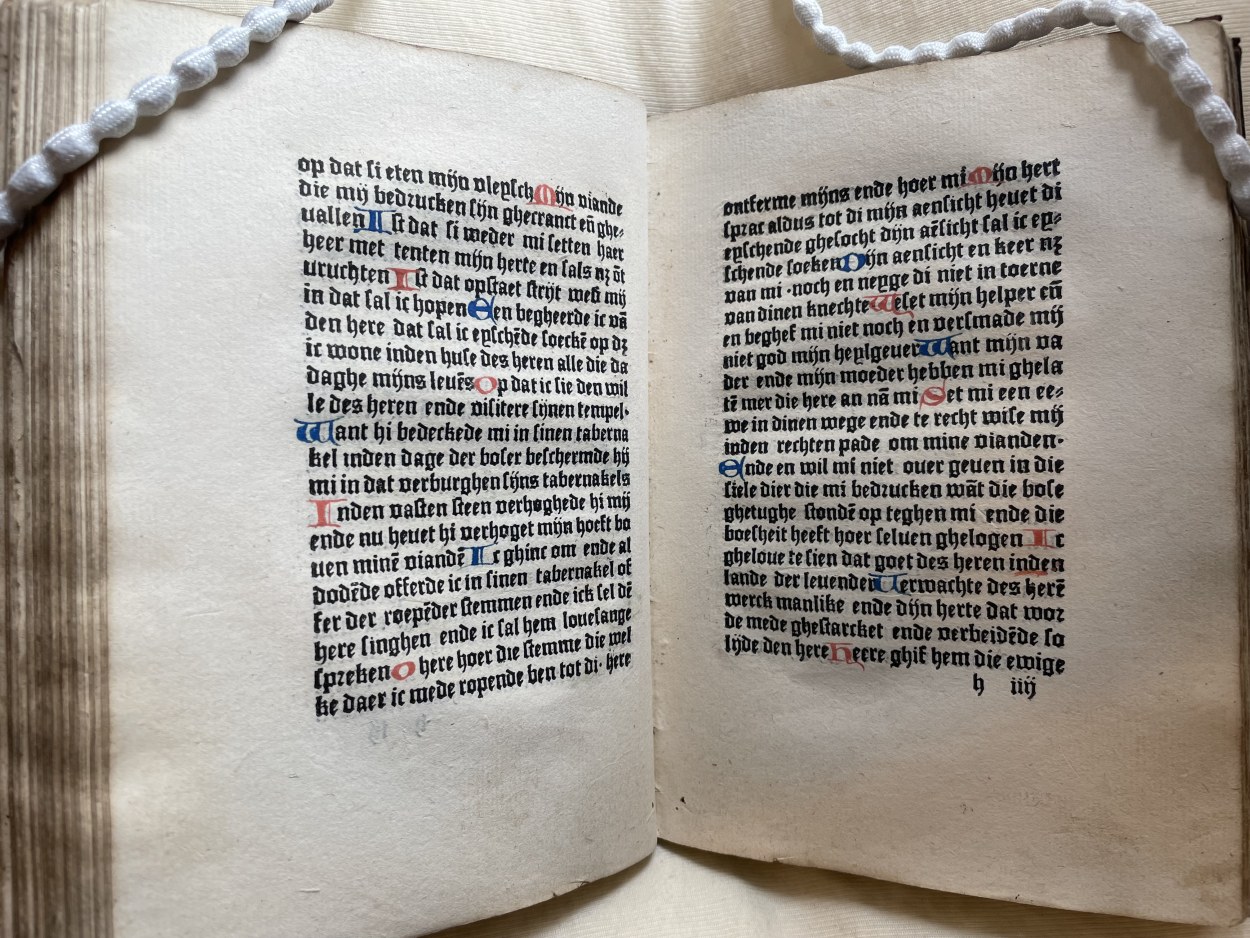 op dat si eten mijn vleysch Mijn viande
die mij bedrucken sijn ghecranct eñ ghe⸗
uallen Ist dat si weder mi setten haer
heer met tenten mijn herte en sals nz õt
vruchten Ist dat opstaet strijt weß mij
in dat sal ic hopen Een begheerde ic vã
den here dat sal ic eyschēde soeckē op dz
ic wone inden huse des heren alle die da
daghe mijns leuēs Op dat ic sie den wil
le des heren ende visitere sijnen tempel·
Want hi bedeckede mi in sinen taberna
kel inden dage der boser beschermde hij
mi in dat verburghen sijns tabernakels
Inden vasten steen verhoghede hi mij
ende nu heuet hi verhoget mijn hoeft bo
uen minē viandē Ic ghinc om ende al
dodēde offerde ic in sinen tabernakel of
fer der roepēder stemmen ende ick sel dē
here singhen ende ic sal hem louesange
spreken O here hoer die stemme die wel
ke daer ic mede ropende ben tot di· here
ontferme mijns ende hoer mi Mijn hert
sprac aldus tot di mijn aensicht heuet di
eyschende ghesocht dijn aēsicht sal ic ey⸗
schende soeken Dijn aensicht en keer nz
van mi ·noch en neyge di niet in toerne
van dinen knechte Weset mijn helper eñ
en beghef mi niet noch en versmade mij
niet god mijn heylgeuer Want mijn va
der ende mijn moeder hebben mi ghela
tē mer die here an nã mi Set mi een ee⸗
we in dinen wege ende te recht wise mij
inden rechten pade om mine vianden·
Ende en wil mi niet ouer geuen in die
siele dier die mi bedrucken wãt die bose
ghetughe stondē op teghen mi ende die
boesheit heeft hoer seluen ghelogen Ic
gheloue te sien dat goet des heren inden
lande der leuender Verwachte des herē
werck manlike ende dijn herte dat wor
de mede ghestarcket ende verbeidēde so
lijde den here Heere ghif hem die ewige
h iiij